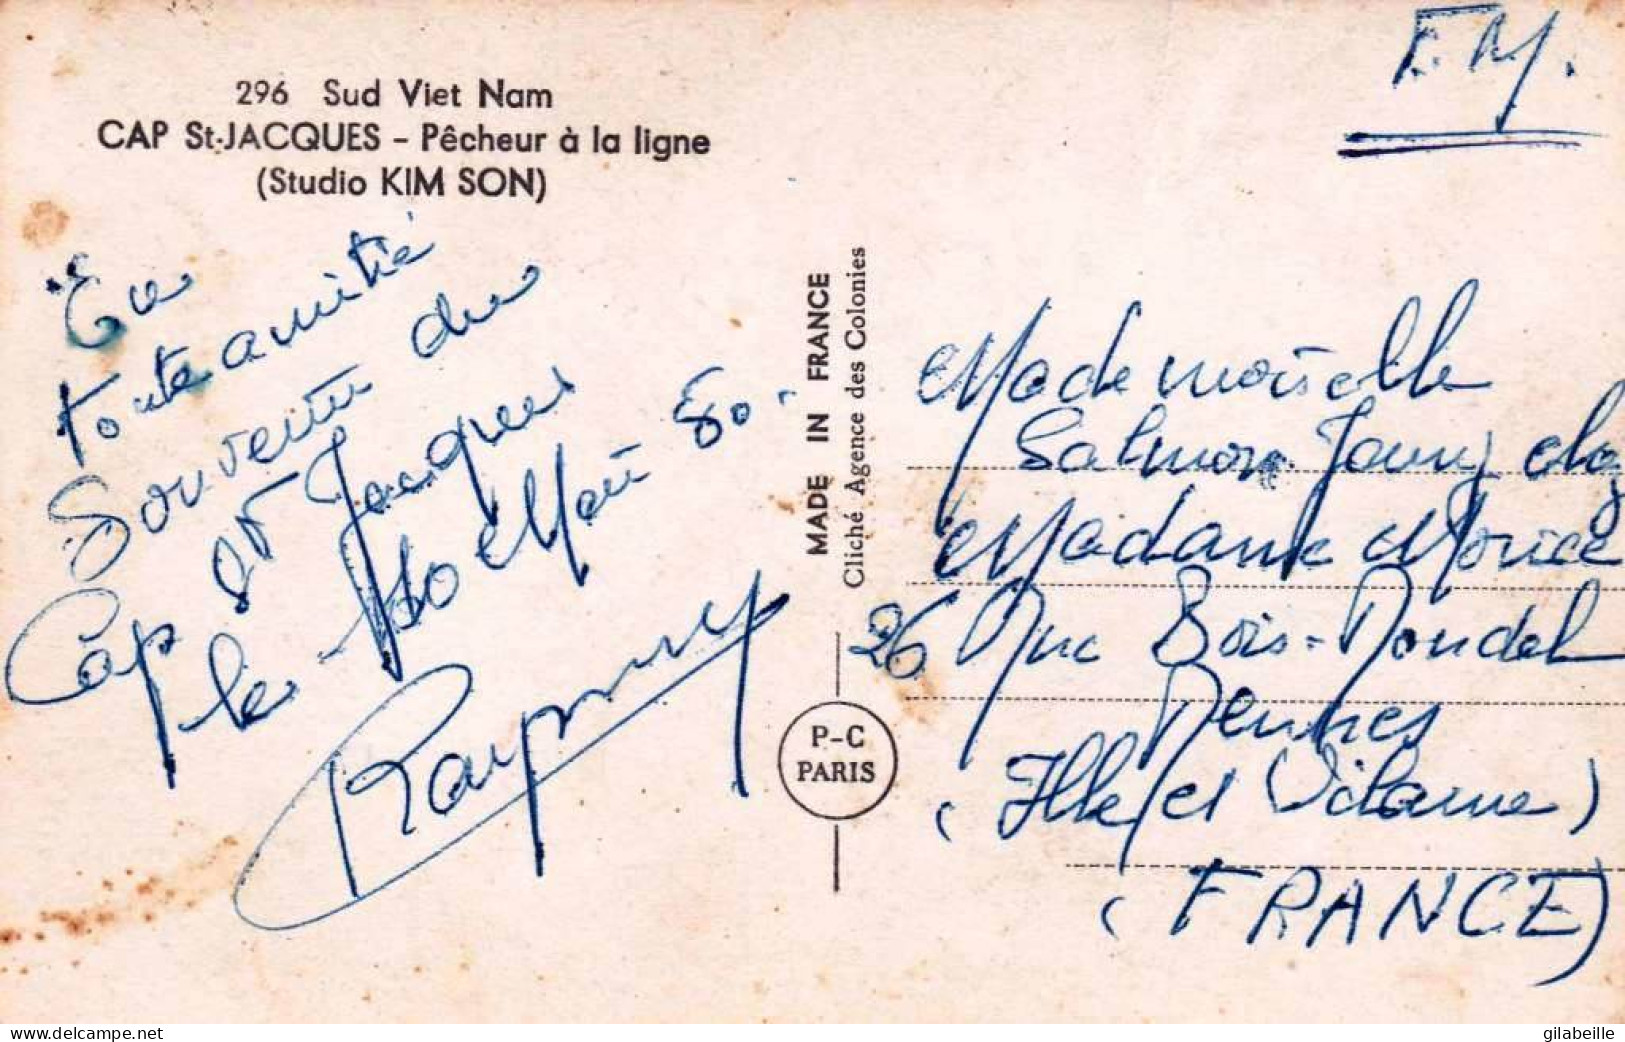 296 Sud Viet Nam
CAP St-JACQUES - Pêcheur à la ligne
(Studio KIM SON)
En
toute amitié
Souvenir du
Cap St Jacques
le 10 Mai 50.
Raymond
MADE IN FRANCE
Cliché Agence des Colonies
P-C
PARIS
F.M.
Mademoiselle
Salmon Jany chez
Madame Morice
26 Rue Bois-Rondel
Rennes
(Ille et Vilaine)
(FRANCE)
www.delcampe.net
gilabeille